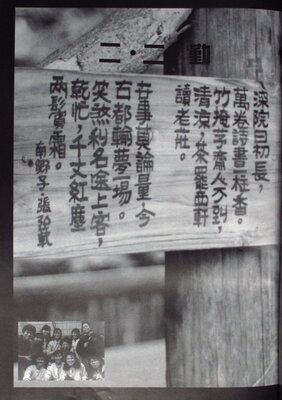 二·二 勤
深院日初長，
萬卷詩書一柱香。
竹掩茅齋人不到，
清涼，茶罷西軒
讀老莊。
世事莫論量，今
古都輸夢一場。
笑煞利名途上客，
乾忙，千丈紅塵
两鬢霜。